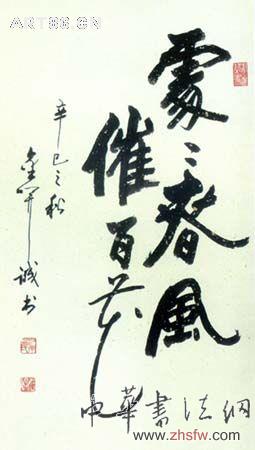 ART86.CN
處〻春風
催百花
辛巳之秋
金开誠书
中華書法網
www.zhsfw.com